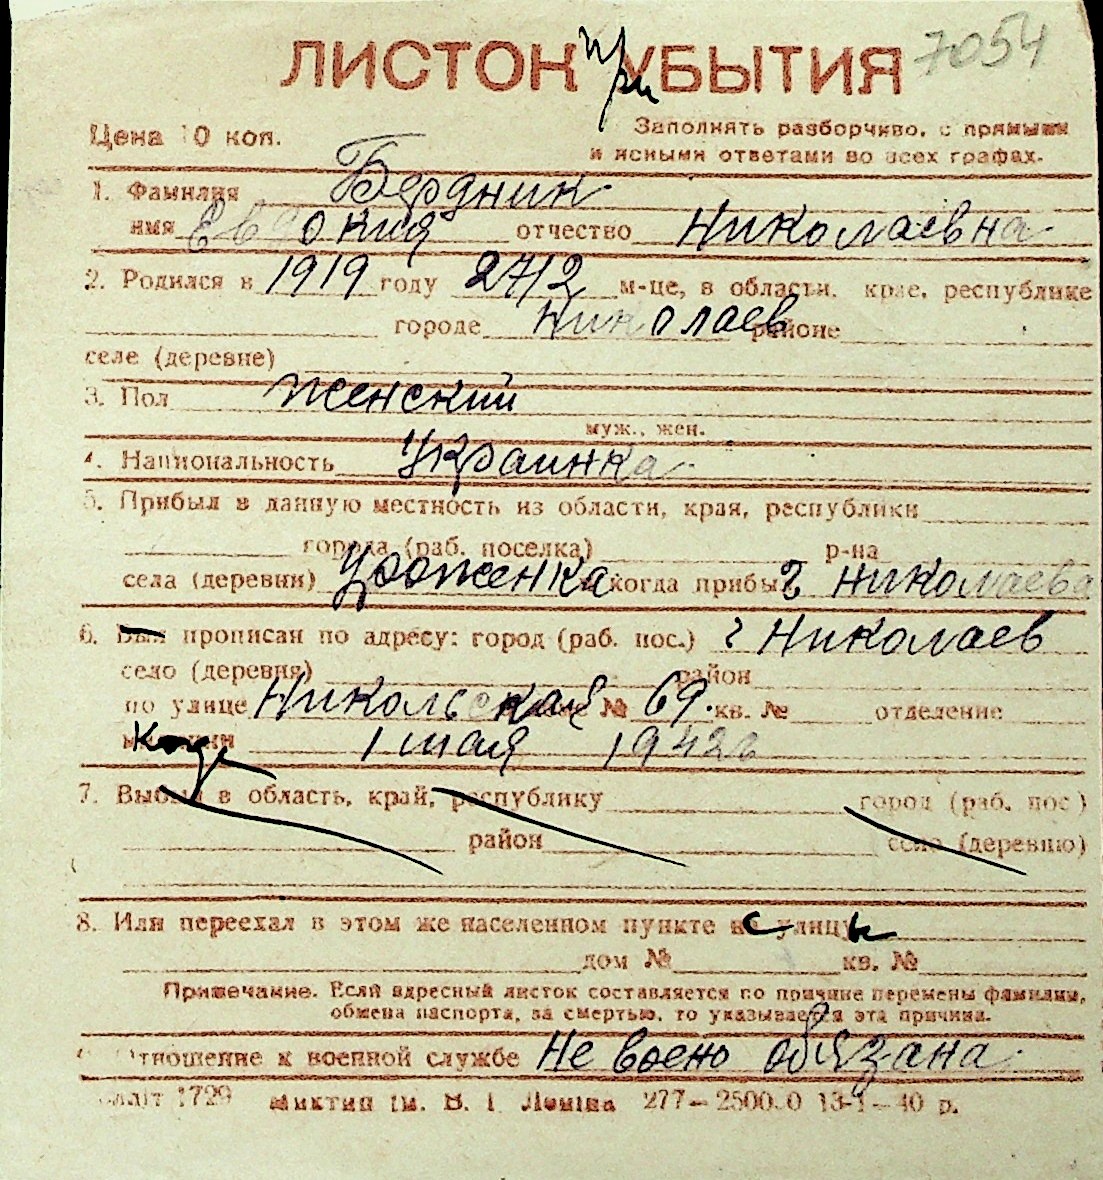 7054
ЛИСТОК при УБЫТИЯ
Цена 10 коп.
Заполнять разборчиво, с прямыми
и ясными ответами во всех графах.
1. Фамилия Бердник
имя Евдокия отчество Николаевна
2. Родился в 1919 году 27/2 м-це, в области, крае, республике
городе Николаев районе
селе (деревне)
3. Пол женский
муж., жен.
4. Национальность Украинка
5. Прибыл в данную местность из области, края, республики
города (раб. поселка) р-на
села (деревни) Уроженка когда прибыл г Николаева
6. Был прописан по адресу: город (раб. пос.) г Николаев
село (деревня) район
по улице Никольская № 69. кв. № отделение
Когда 1 мая 1942г
7. Выбыл в область, край, республику город (раб. пос.)
район село (деревню)
8. Или переехал в этом же населенном пункте с улицы
дом № кв. №
Примечание. Если адресный листок составляется по причине перемены фамилии,
обмена паспорта, за смертью, то указывается эта причина.
Отношение к военной службе Не воено обязана.
1729 ім. В. І. Леніна 277—2500.0 13-1—40 р.